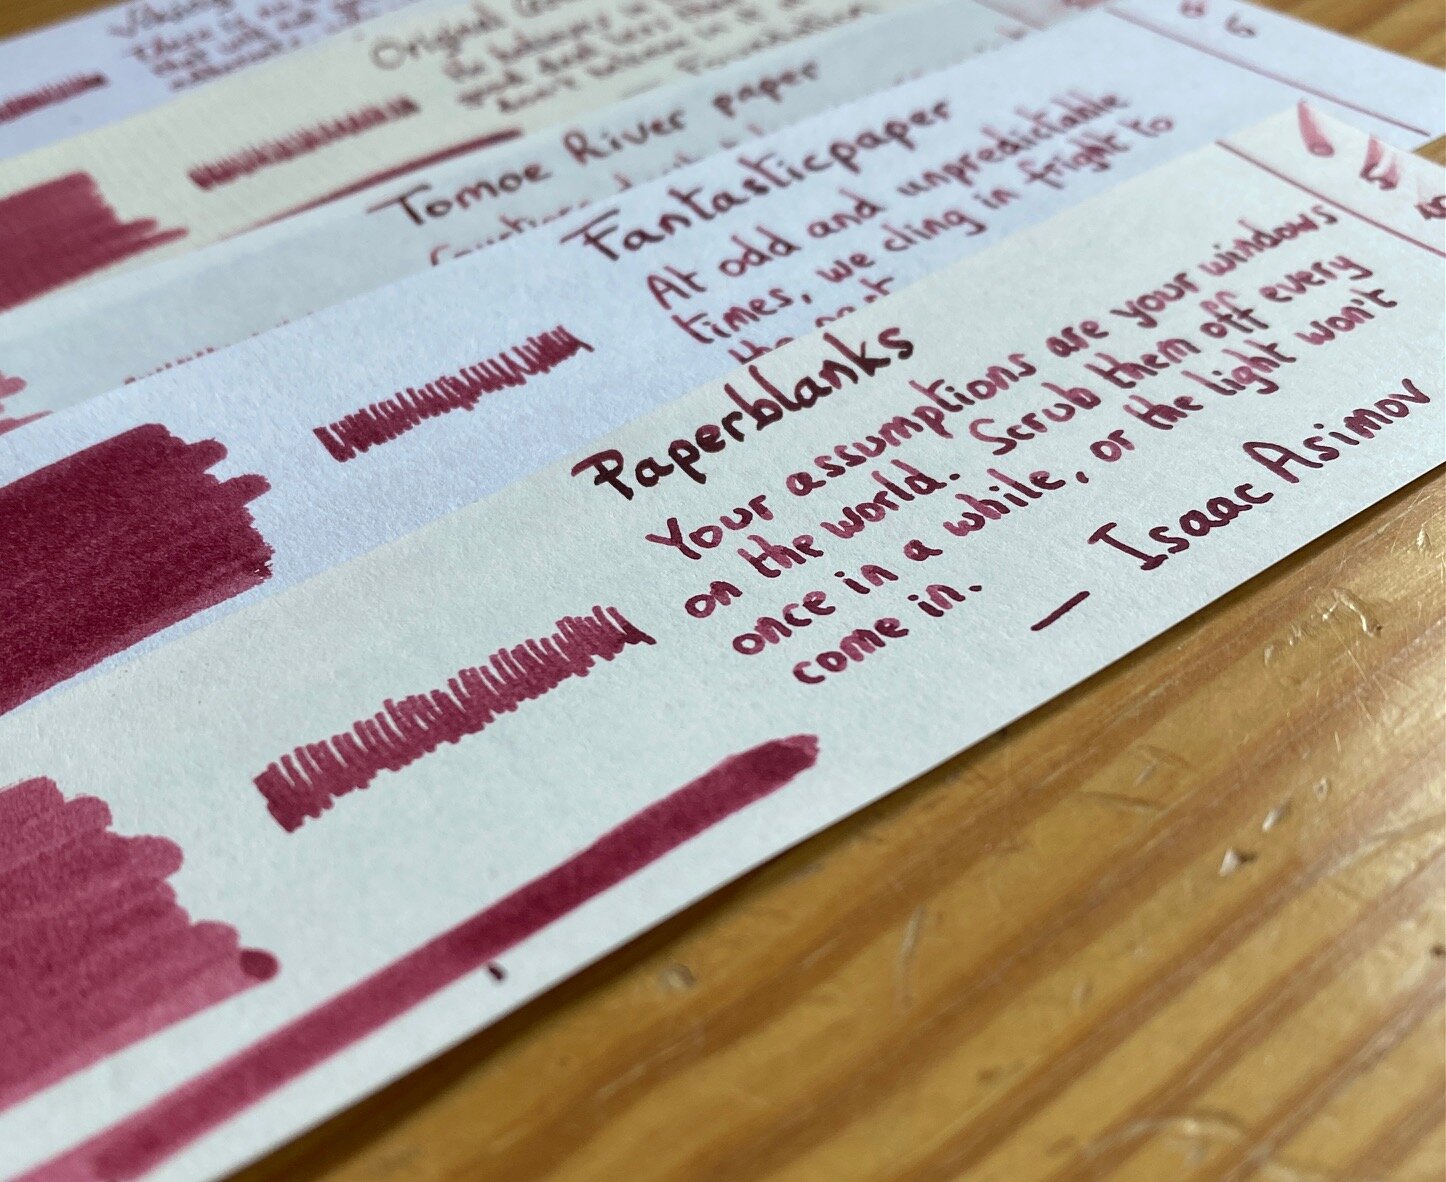 Original
the believer is
good and
don't believe in it
Tomoe River paper
Fantasticpaper
At odd and unpredictable
times, we cling in fright to
the past
Paperblanks
Your assumptions are your windows
on the world. Scrub them off every
once in a while, or the light won't
come in.
— Isaac Asimov
5